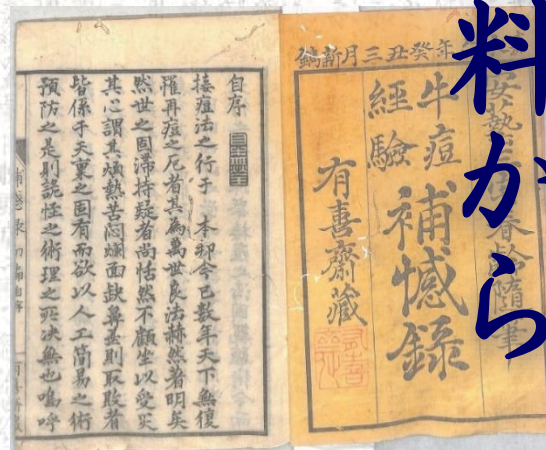 料から
年癸丑三月新鐫
春齡隨筆
牛痘
經驗
補憾録
有喜齋藏
自序
接痘法之行于　本邦今已数年天下無復
罹再痘之厄者其為萬世良法赫然著明矣
然世之固滞持疑者尚恬然不顧坐以受災
其心謂其煩熱苦悶爛面缺鼻甚則取敗者
皆係于天禀之固有而欲以人工簡易之術
預防之是則詭怪之術理之所决無也嗚呼